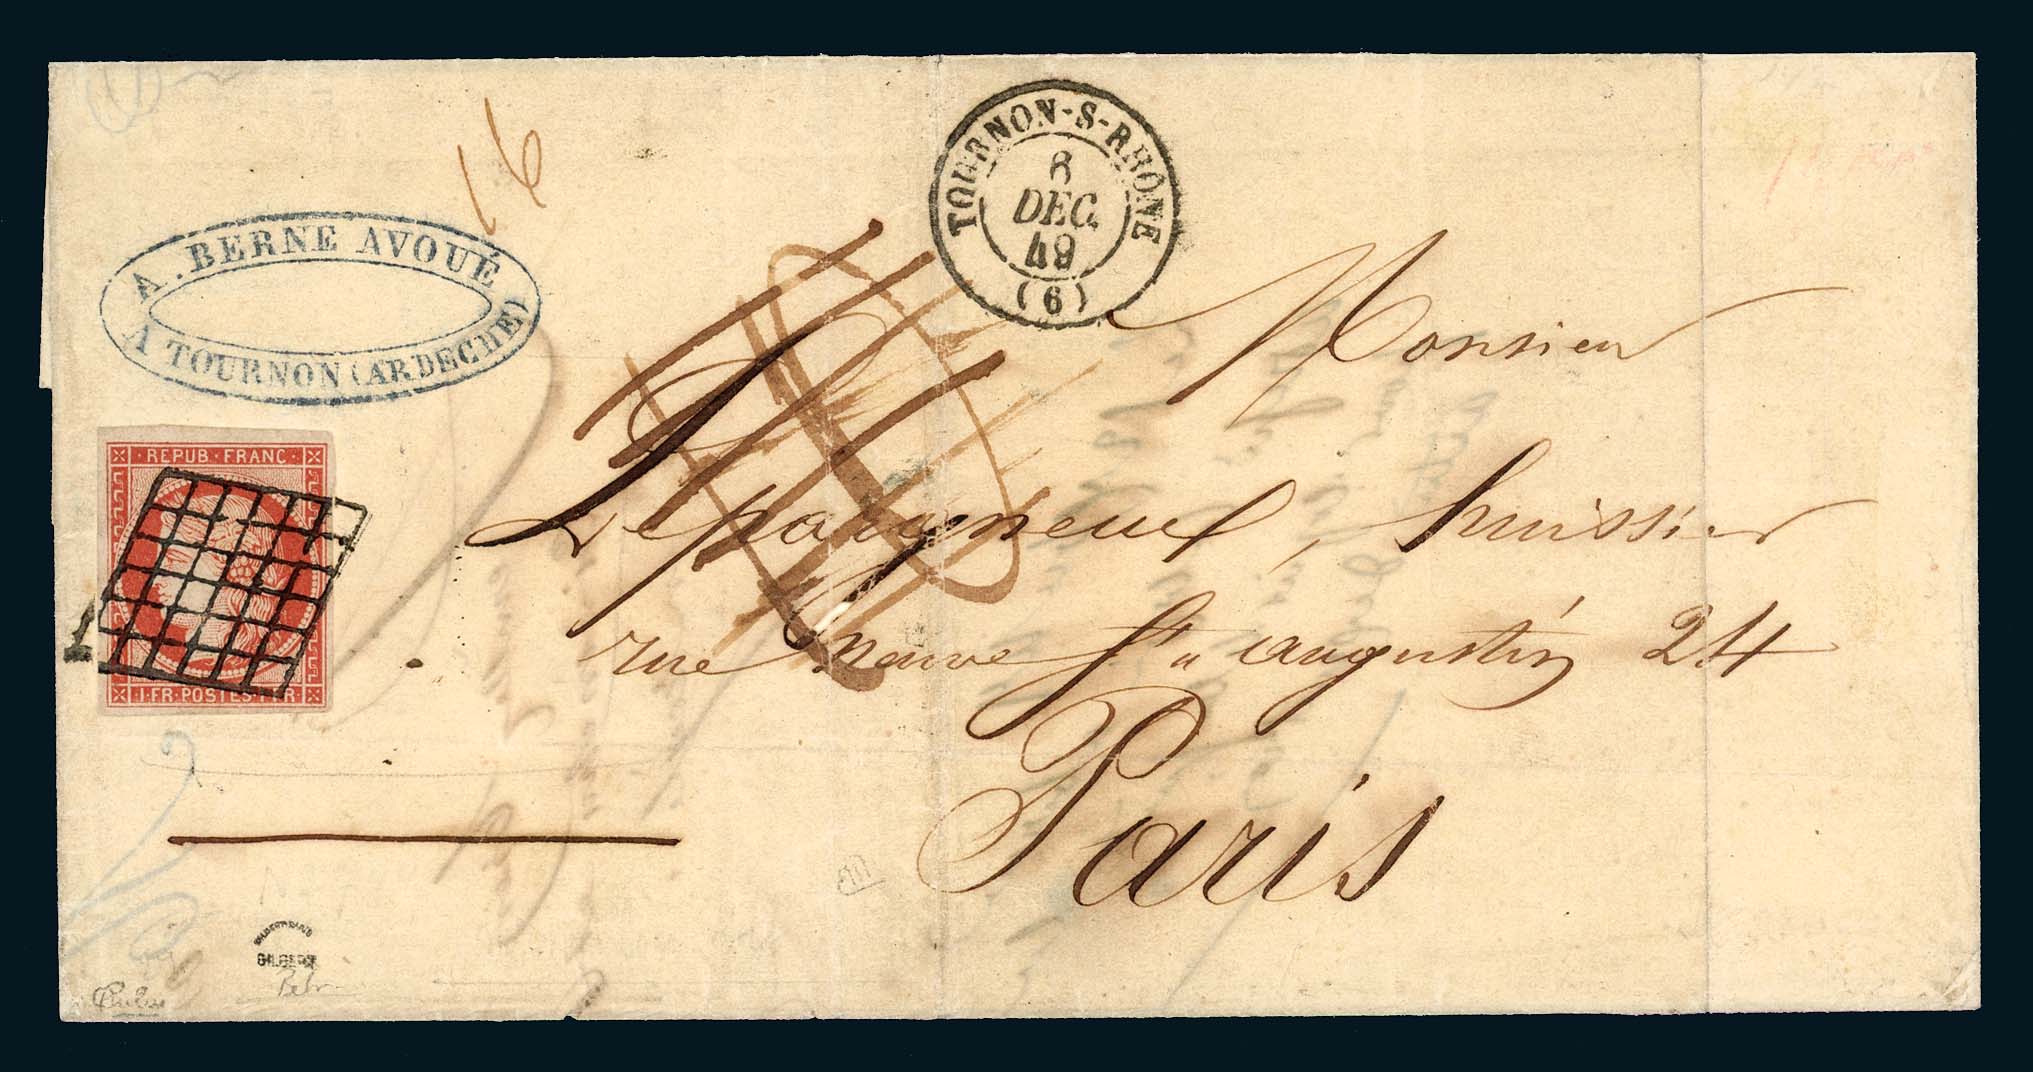 16
TOURNON-S-RHÔNE
8
DEC.
49
(6)
A. BERNE AVOUÉ
A TOURNON (ARDECHE)
Monsieur
REPUB·FRANC·
1·FR·POSTES·1·FR·
Lepaigneux, huissier
rue Neuve St augustin 24
Paris
GILBERT